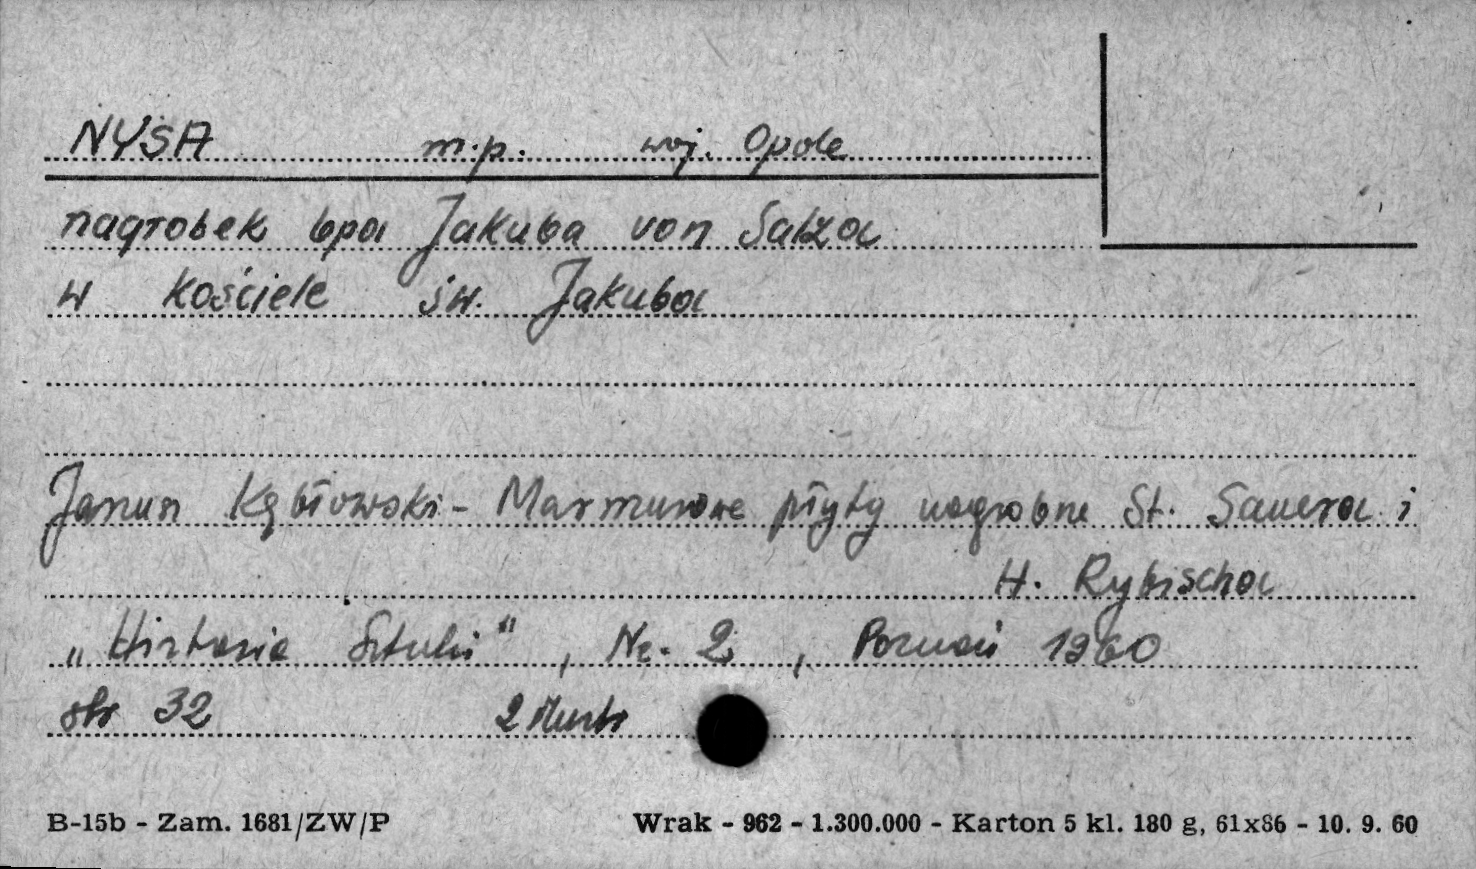 NYSA m.p. woj. Opole
nagrobek bpa Jakuba von Salza
w kościele św. Jakuba
Janusz Kębłowski - Marmurowe płyty nagrobne St. Sauera i
H. Rybischa
„Historia Sztuki", Nr. 2, Poznań 1960
str 32 2 ilustr
B-15b - Zam. 1681/ZW/P Wrak - 962 - 1.300.000 - Karton 5 kl. 180 g, 61x86 - 10. 9. 60